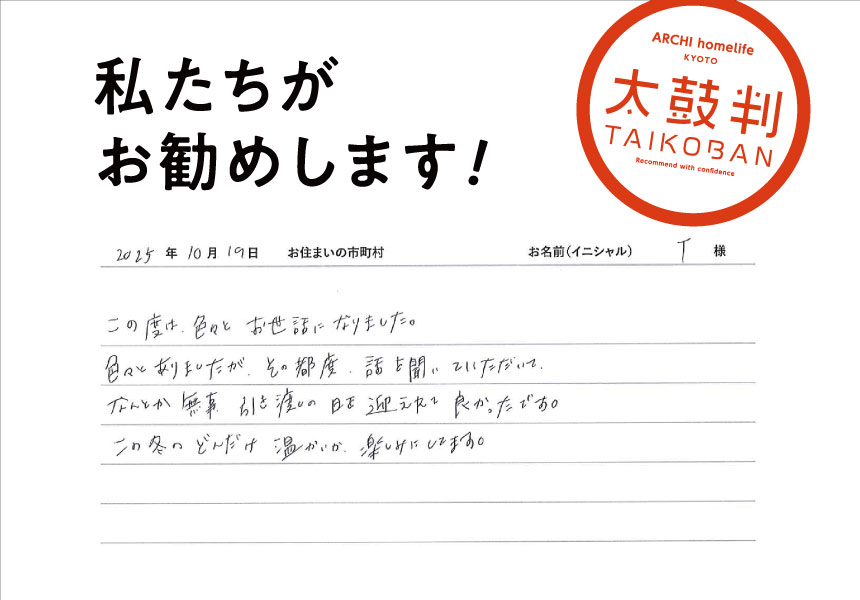 私たちが
お勧めします!
ARCHI homelife
KYOTO
太鼓判
TAIKOBAN
Recommend with confidence
2025 年 10 月 19 日 お住まいの市町村 お名前(イニシャル) T 様
この度は、色々と お世話に なりました。
色々と ありましたが、その都度、話を聞いて いただいて、
なんとか 無事、引き渡しの 日を 迎えれて 良かったです。
この冬の どんだけ 温かいか、楽しみにしてます。